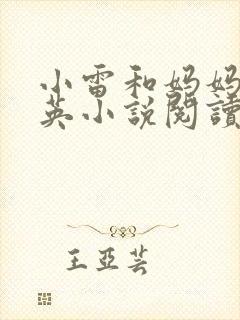 小雷和妈妈
英小說閱讀
王亞芸